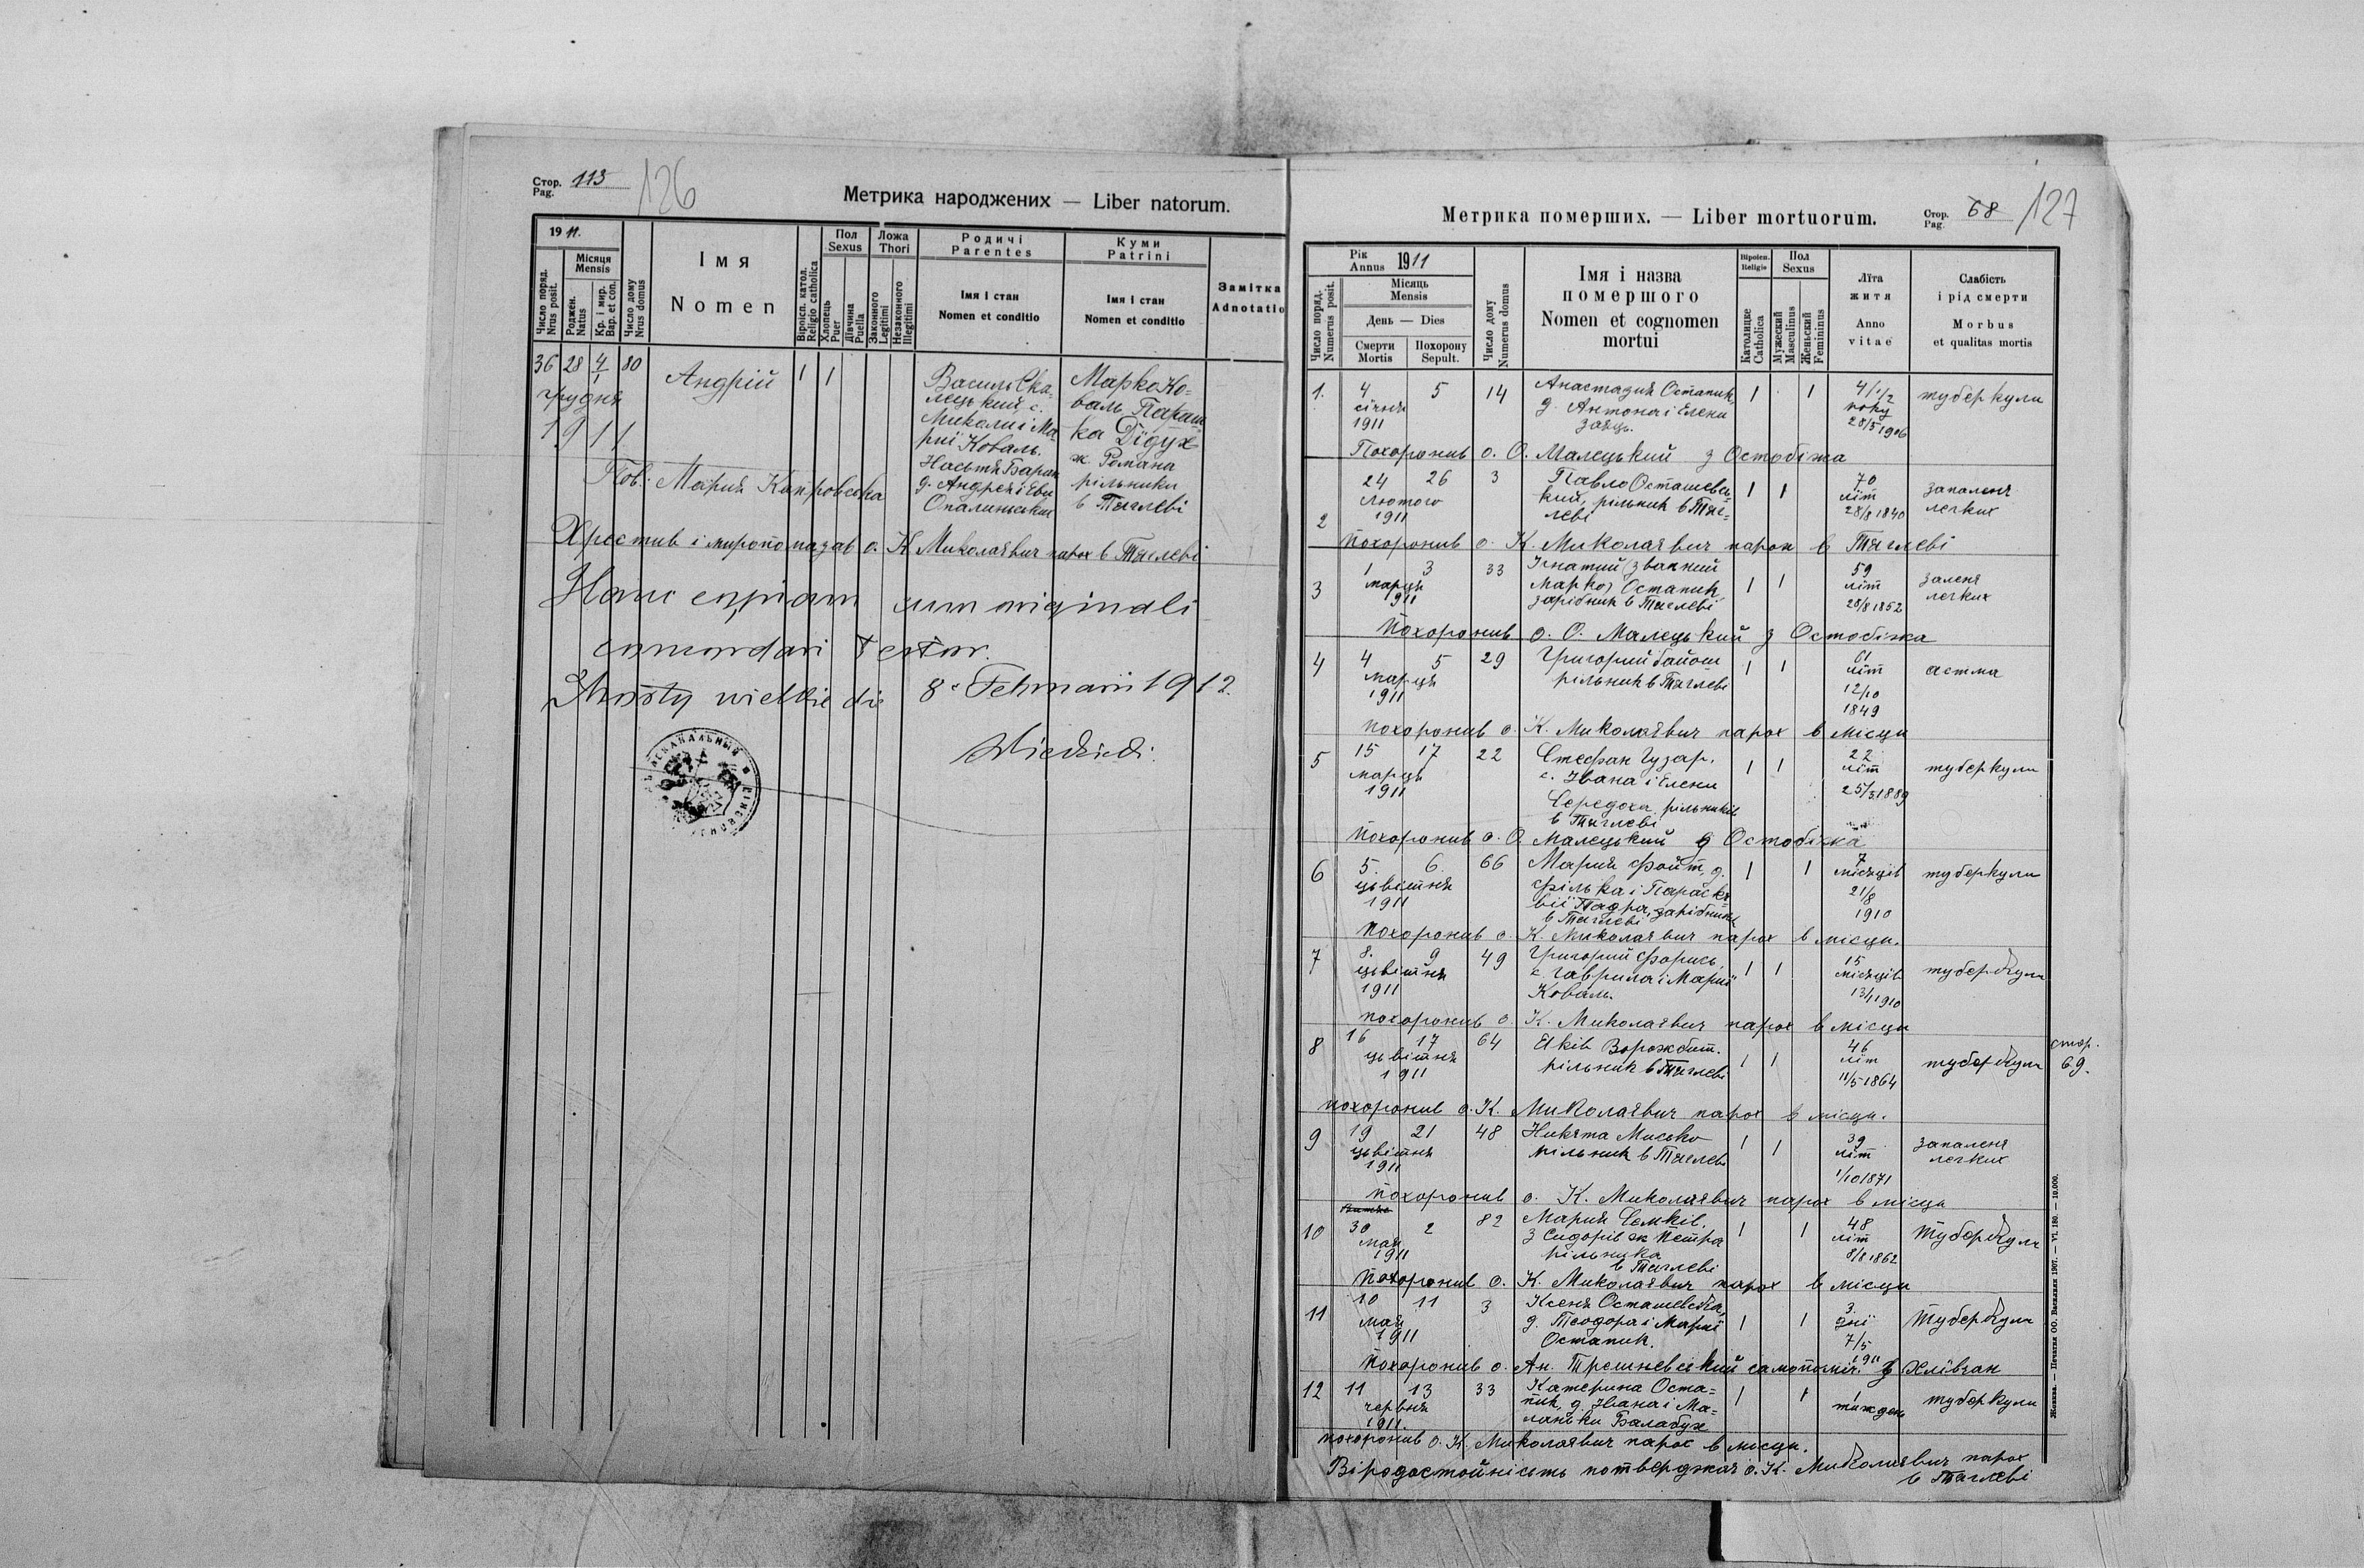 Стор. 113
Pag.
126
Метрика народжених — Liber natorum.
1911.
Число поряд.
Nrus posit.
Місяця
Mensis
Роджен.
Natus
Кр. і мир.
Bap. et con.
Число дому
Nrus domus
Імя
Nomen
Віроісп. катол.
Religio catholica
Пол
Sexus
Хлопець
Puer
Дівчина
Puella
Ложа
Thori
Законного
Legitimi
Незаконного
Illegitimi
Родичі
Parentes
Імя і стан
Nomen et conditio
Куми
Patrini
Імя і стан
Nomen et conditio
Замітка
Adnotatio
36 28 4/1 80 Андрій 1 1
грудня
1911
Василь Ска-
лецький, с.
Миколи і Ма-
риї Коваль.
Настя Баран
д. Андрея і Еви
Опалинських
Марко Ко-
валь Параш-
ка Дїдух
ж. Романа
рільники
в Тяглеві
Пов: Мария Капровска
Хрестив і миропомазав о. К. Миколаєвич парох в Тяглеві
Hanc copiam cum originali
concordari testor.
8. Februarii 1912.
Стор. 68
Pag.
127
Метрика померших. — Liber mortuorum.
Рік
Annus 1911
Число поряд.
Numerus posit.
Місяць
Mensis
День — Dies
Смерти
Mortis
Похорону
Sepult.
Число дому
Numerus domus
Імя і назва
помершого
Nomen et cognomen
mortui
Віроісп.
Religio
Католицке
Catholica
Пол
Sexus
Мужеский
Masculinus
Женьский
Femininus
Лїта
житя
Anno
vitae
Слабість
і рід смерти
Morbus
et qualitas mortis
1. 4 5 14 Анастазия Остапик, 1 1 4 1/2 туберкули
січня д. Антона і Елени року
1911 Заяць. 28/5 1906
Похоронив о. О. Малецький з Остобіжа
2 24 26 3 Павло Осташевсь- 1 1 70 запаленя
Лютого кий, рільник в Тяг- літ легких
1911 леві 28/8 1840
Похоронив о. К. Миколаєвич парох в Тяглеві
3 1 3 33 Ігнатий (званний 1 1 59 заленя
марця Марко) Остапик, літ легких
911 зарібник в Тяглеві 28/8 1852
Похоронив о. О. Малецький з Остобіжа
4 4 5 29 Григорий Байош 1 1 61 астма
марця рільник в Тяглеві літ
1911 12/10
1849
похоронив о. К. Миколаєвич парох в місци
5 15 17 22 Стефан Гузар. 1 1 22 туберкули
марця с. Івана і Елени літ
1911 Середоха рільників 25/3 1889
в Тяглеві
Похоронив о. О. Малецький з Остобіжа
6 5. 6. 66 Мария Файт, д. 1 1 7 туберкули
цьвітня Филька і Параске- місяців
1911 вії Падра, зарібник 21/8
в Тяглеві 1910
Похоронив о. К. Миколаєвич парох в місци.
7 8. 9 49 Григорий Форись, 1 1 15 туберкули
цьвітня с. Гаврила і Мариї місяців
1911 Коваль. 13/1 1910
похоронив о. К. Миколаєвич парох в місци
8 16 17 64 Яків Ворожбит. 1 1 46 туберкули
цьвітня рільник в Тяглеві літ
1911 11/5 1864
стор.
69.
похоронив о. К. Миколаєвич парох в місци.
9 19 21 48 Никита Мисько 1 1 39 запаленя
цьвітня рільник в Тяглеві літ легких
1911 1/10 1871
Похоронив о. К. Миколаєвич парох в місци
10 30 2 82 Мария Семків. 1 1 48 Туберкули
мая з Сидорів ж Петра літ
1911 рільника 8/8 1862
в Тяглеві
Похоронив о. К. Миколаєвич парох в місци
11 10 11 3 Ксеня Осташевска, 1 1 3. Туберкули
мая д. Теодора і Мариї дні
1911 Остапик. 7/5
1911
Похоронив о. Ан. Трешневский самопоміч. з Хлівчан
12 11 13 33 Катерина Оста- 1 1 1 туберкули
червня пик, д. Івана і Ма- тиждень
1911. ланьки Балабух
похоронив о. К. Миколаєвич парох в місци.
Віродостойність потверджає о. К. Миколаєвич парох
в Тяглеві
Жовква. — Печатня ОО. Василиян 1907. — VI. 180. — 10.000.